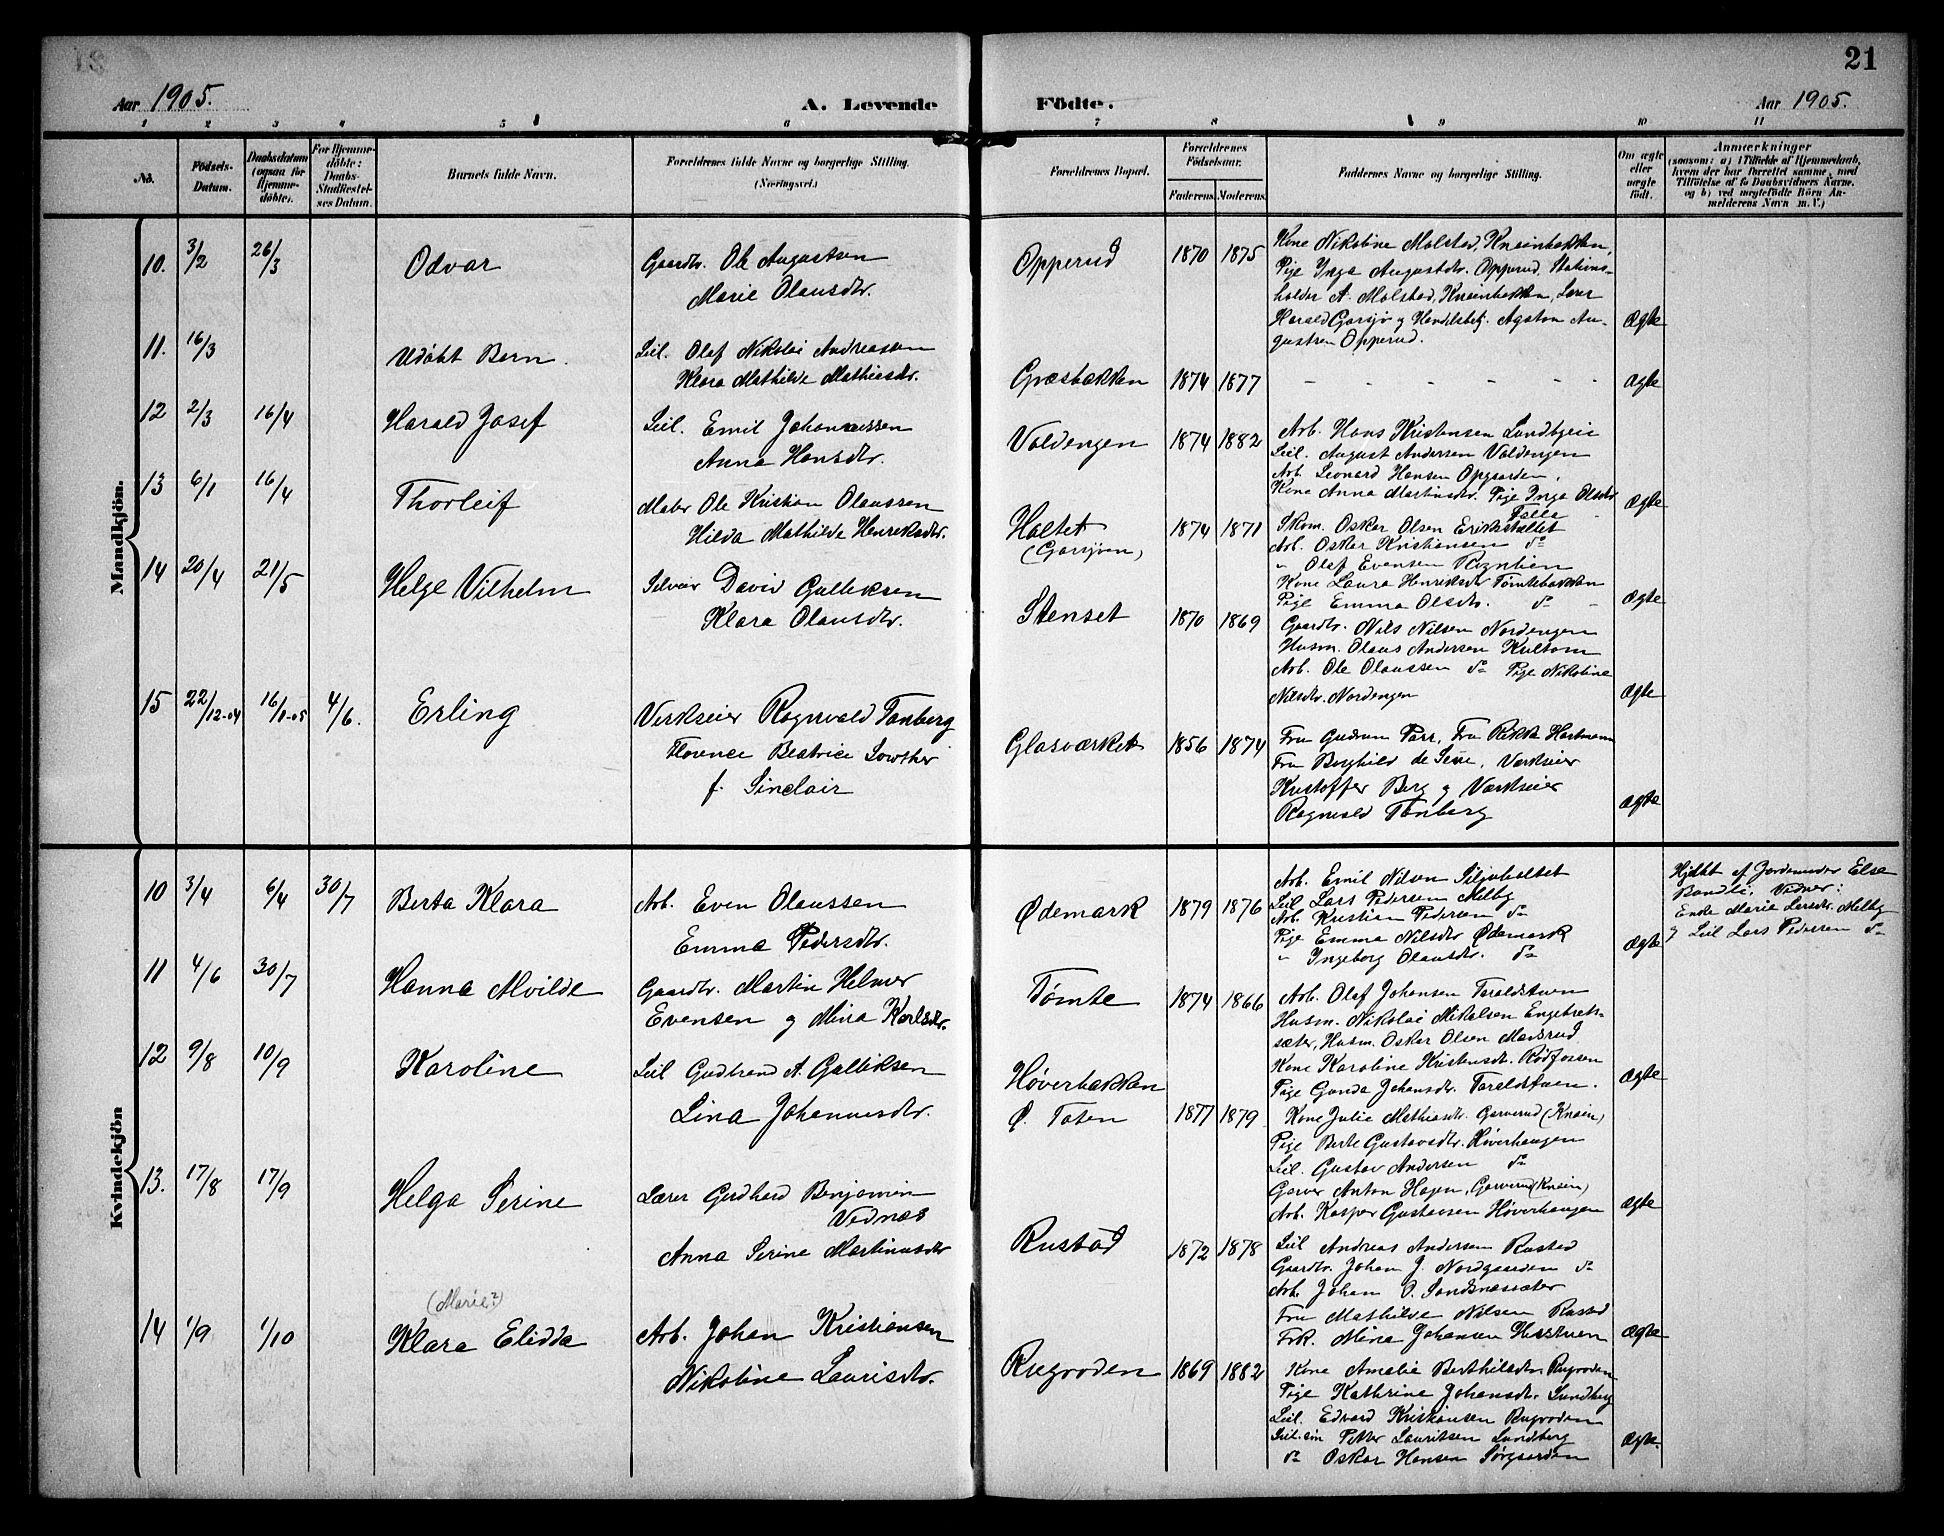 21
Aar 1905.
A. Levende
Födte.
Aar 1905.
1 2 3 4 5 6 7 8 9 10 11
No.
Födsels-Datum.
Daabsdatum (ogsaa for Hjemme-döbte).
For Hjemme-döbte: Daabs-Stadfæstel-ses Datum.
Barnets fulde Navn.
Forældrenes fulde Navne og borgerlige Stilling. (Næringsvei.)
Forældrenes Bopæl.
Forældrenes Födselsaar.
Faderens. Moderens.
Faddernes Navne og borgerlige Stilling.
Om ægte eller uægte födt.
Anmærkninger
(saasom: a) i Tilfælde af Hjemmedaab, hvem der har forrettet samme, med Tilföielse af to Daabsvidners Navne, og b) ved uægtefödte Börn An-melderens Navn m. V.)
Mandkjön.
10. 3/2 26/3 Odvar
Gaardbr. Ole Augustsen
Marie Olausdtr.
Opperud 1870 1875
Kone Nikoline Molstad, Knainbakken,
Pige Inga Augustdtr. Opperud, Stations-
holder A. Molstad, Knainbakken, Lærer
Harald Garsjø og Handelsbetj. Agaton Au-
gustsen Opperud.
Ægte
11. 16/3 Udøbt Barn.
Leil. Olaf Nikolai Andreassen
Klara Mathilde Mathiasdtr.
Græsbakken 1874 1877 - - - - - - ægte
12 2/3 16/4 Harald Josef
Leil. Emil Johannessen
Anna Hansdtr.
Valdengen 1874 1882
Arb. Hans Kristensen Lundbyeie
Leil. August Andersen Valdengen
Arb. Leonard Hansen Opgaarden,
Kone Anna Martinsdtr. Pige Inga Olsdtr
Falla
Ægte
13 6/1 16/4 Thorleif
Maler Ole Kristian Olaussen
Hilda Mathilde Henriksdtr.
Holtet
(Garsjøen)
1874 1871
Skom. Oskar Olsen Eriksstallet
Arb. Oskar Kristiansen do
" Olaf Evensen Rognlien
Kone Laura Henriksdtr Tømtebakken
Pige Emma Olsdtr. do
Ægte
14 20/4 21/5 Helge Vilhelm
Selveier David Gulliksen
Klara Olausdtr.
Stenset 1870 1869
Gaardbr. Nils Nilsen Nordengen
Husm. Olaus Andersen Kultom
Arb. Ole Olaussen do Pige Nikoline
Nilsdtr. Nordengen
Ægte
15 22/12-04 16/1-05 4/6. Erling
Verkseier Ragnvald Tanberg
Florence Beatrice Lowther
f. Sinclair
Glasværket 1856 1874
Fru Gudrun Parr, Fru Rikka Hartmann
Fru Borghild de Seue, Verkseier
Kristoffer Berg og Værkseier
Ragnvald Tanberg
Ægte
Kvindekjön
10 3/4 6/4 30/7 Berta Klara
Arb. Even Olaussen
Emma Pedersdtr.
Ødemark 1879 1876
Arb. Emil Nilsen Siljubøltet
Leil Lars Pedersen Melby
Arb. Kristian Pedersen do
Pige Emma Nilsdtr Ødemark
" Ingeborg Olausdtr. do
Ægte
Hjdbt af Jordemoder Else
Vidner:
Enke Marie Larsdtr. Melby
og Leil Lars Pedersen do
11 4/6 30/7 Hanna Alvilde
Gaardbr. Martin Helmer
Evensen og Mina Karlsdtr.
Tømte 1874 1866
Arb. Olaf Johansen Taraldstuen
Husm. Nikolai Mikalsen Engebrets-
sæter, Husm. Oskar Olsen Madsrud
Kone Karoline Kristensdtr. Rødfossen
Pige Gunda Johansdtr. Taraldstuen.
Ægte
12 9/8 10/9 Karoline
Leil Gudbrand A. Gulliksen
Lina Johannesdtr.
Høverbakken
Ø. Toten 1877 1879
Kone Julie Mathiasdtr. Garverud (Knain)
Pige Berte Gustavsdtr. Høverhaugen
Leil. Gustav Andersen do
Garver Anton Hagen, Garverud (Knain)
Arb. Kasper Gustavsen Høverhaugen
Ægte
13. 17/8 17/9 Helga Serine
Lærer Gerhard Benjamin
Vednæs
Anna Serine Martinusdtr
Rustad 1872 1878
Leil Andreas Andersen Rustad
Gaardbr. Johan J. Nordgaarden do
Arb. Johan O. Sandsnæssæter
Fru Mathilde Nilsen Rustad
Frk. Mina Johansen
Ægte
(Marie?)
14 1/9 1/10 Klara Elidda
Arb. Johan Kristiansen
Nikoline Laurisdtr.
Rugroden 1869 1882
Kone Amalie Berthilsdtr Rugroden
Pige Kathrine Johansdtr. Lundberg
Leil. Edvard Kristiansen Rugroden
Leil.søn Petter Lauritsen Lundberg
do Oskar Hansen Sørgaarden
Ægte.